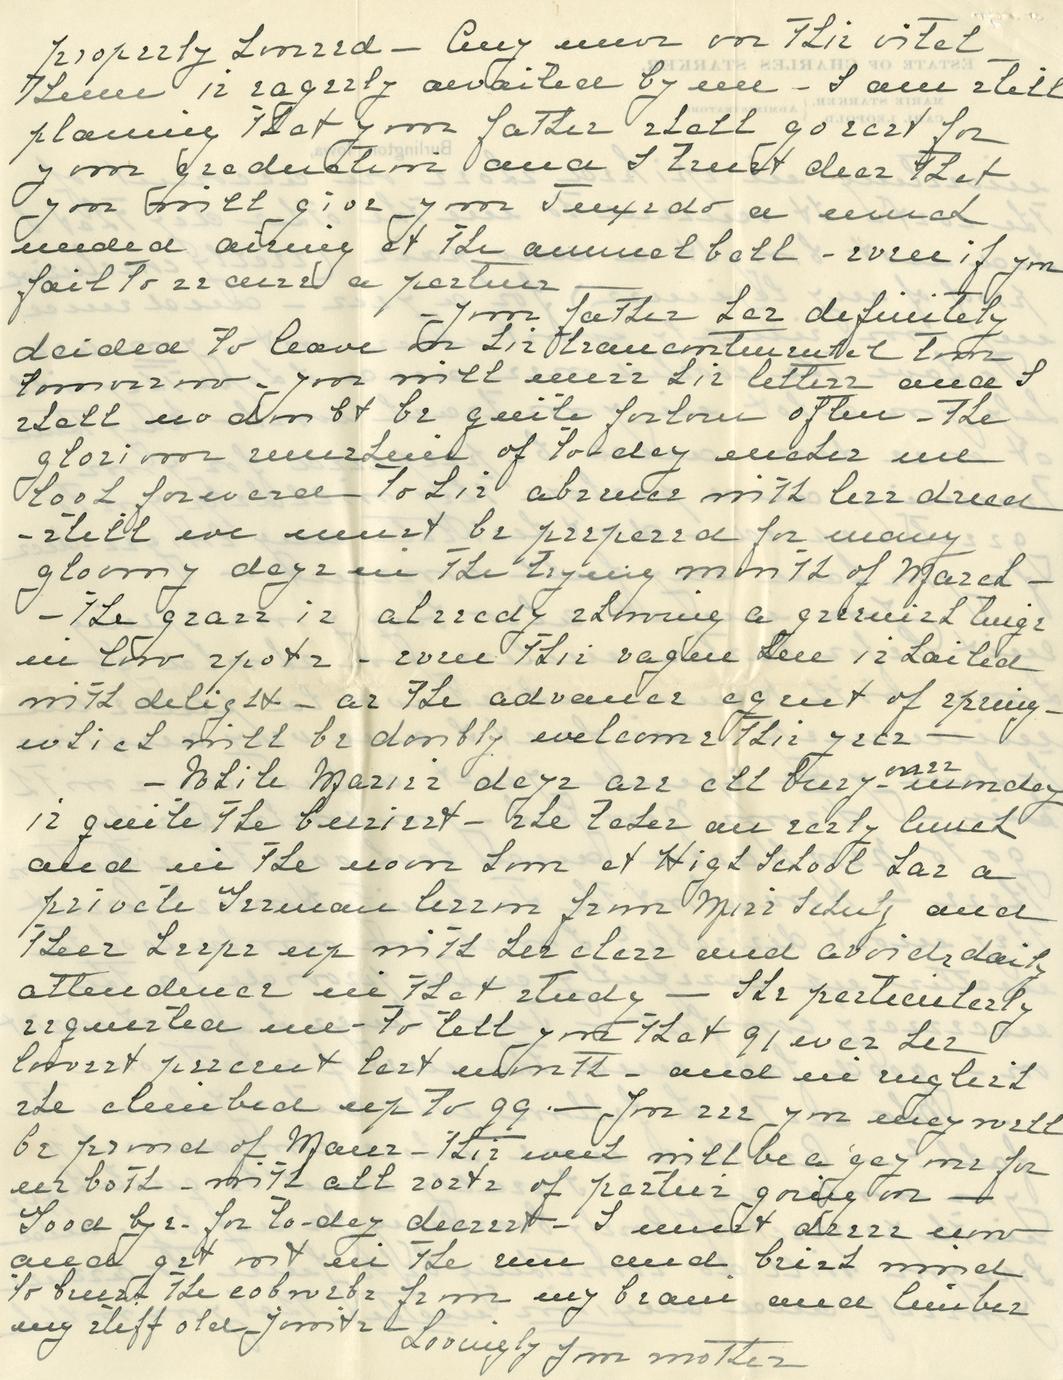 properly housed — Any news on this vital
theme is eagerly awaited by me — I am still
planning that your father shall go east for
your graduation and I trust dear that
you will give your Tuxedo a much
needed airing at the annual ball — even if you
fail to secure a partner —
— Your father has definitely
decided to leave on his transcontinental tour
tomorrow — you will miss his letters and I
shall no doubt be quite forlorn often — The
glorious sunshine of to-day makes me
look forward to his absence with less dread
— still we must be prepared for many
gloomy days in the trying month of March —
— The grass is already showing a greenish tinge
in low spots — even this vague hue is hailed
with delight — as the advance agent of spring —
which will be doubly welcome this year —
— While Maries days are all busy — ones
monday
is quite the busiest — she takes an early lunch
and in the noon hour at High School has a
private German lesson from Miss Schulz and
thus keeps up with her class and avoids daily
attendance in that study — She particularly
requested me — to tell you that 91 was her
lowest percent last month — and in english
she climbed up to 99 — You see you may well
be proud of Marie — This week will be a gay one for
us both — with all sorts of parties going on —
Good bye — for to-day dearest — I must dress now
and get out in the sun and brisk wind
to brush the cobwebs from my brain and limber
my stiff old joints —
Lovingly your mother
ESTATE OF CHARLES STARKER
MARIE STARKER,
CARL LEOPOLD,
ADMINISTRATORS
Burlington, Iowa